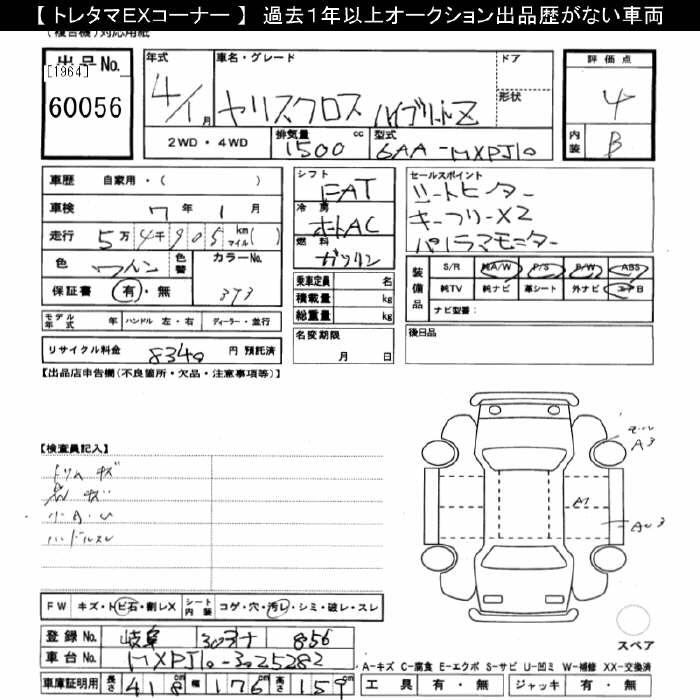 【 トレタマＥＸコーナー 】 過去１年以上オークション出品歴がない車両
(複合機)対応用紙
出品No.
[1964]
60056
年式
4/1月
車名・グレード
ヤリスクロス ハイブリットZ
ドア
形状
評価点
4
内装
B
2WD・4WD
排気量
1500 cc
型式
6AA-MXPJ10
車歴 自家用・( )
車検 7年 1月
走行 5万4千905 km マイル( )
色 ワイン
色替
カラーNo.
3T3
保証書 有・無
シフト
FAT
冷房
オートAC
燃料
ガソリン
乗車定員 名
積載量 kg
総重量 kg
セールスポイント
シートヒーター
キーフリーX2
パノラマモニター
装備品
S/R A/W P/S P/W ABS
純TV 純ナビ 革シート 外ナビ エアB
ナビ型番：
モデル年式 年 ハンドル 左・右 ディーラー・並行
リサイクル料金 8340 円 預託済
名変期限
月 日
後日品
【出品店申告欄(不良箇所・欠品・注意事項等)】
【検査員記入】
ドリム キズ
小A・U
ハンドルスレ
A3
A1
AU3
FW キズ・トビ石・割レX
シート内装 コゲ・穴・汚レ・シミ・破レ・スレ
スペア
登録No. 岐阜 856
車台No. MXPJ10-3025282
車庫証明用 長さ 418cm 幅 176cm 高さ 159cm
A-キズ C-腐食 E-エクボ S-サビ U-凹ミ W-補修 XX-交換済
工具 有・無 ジャッキ 有・無